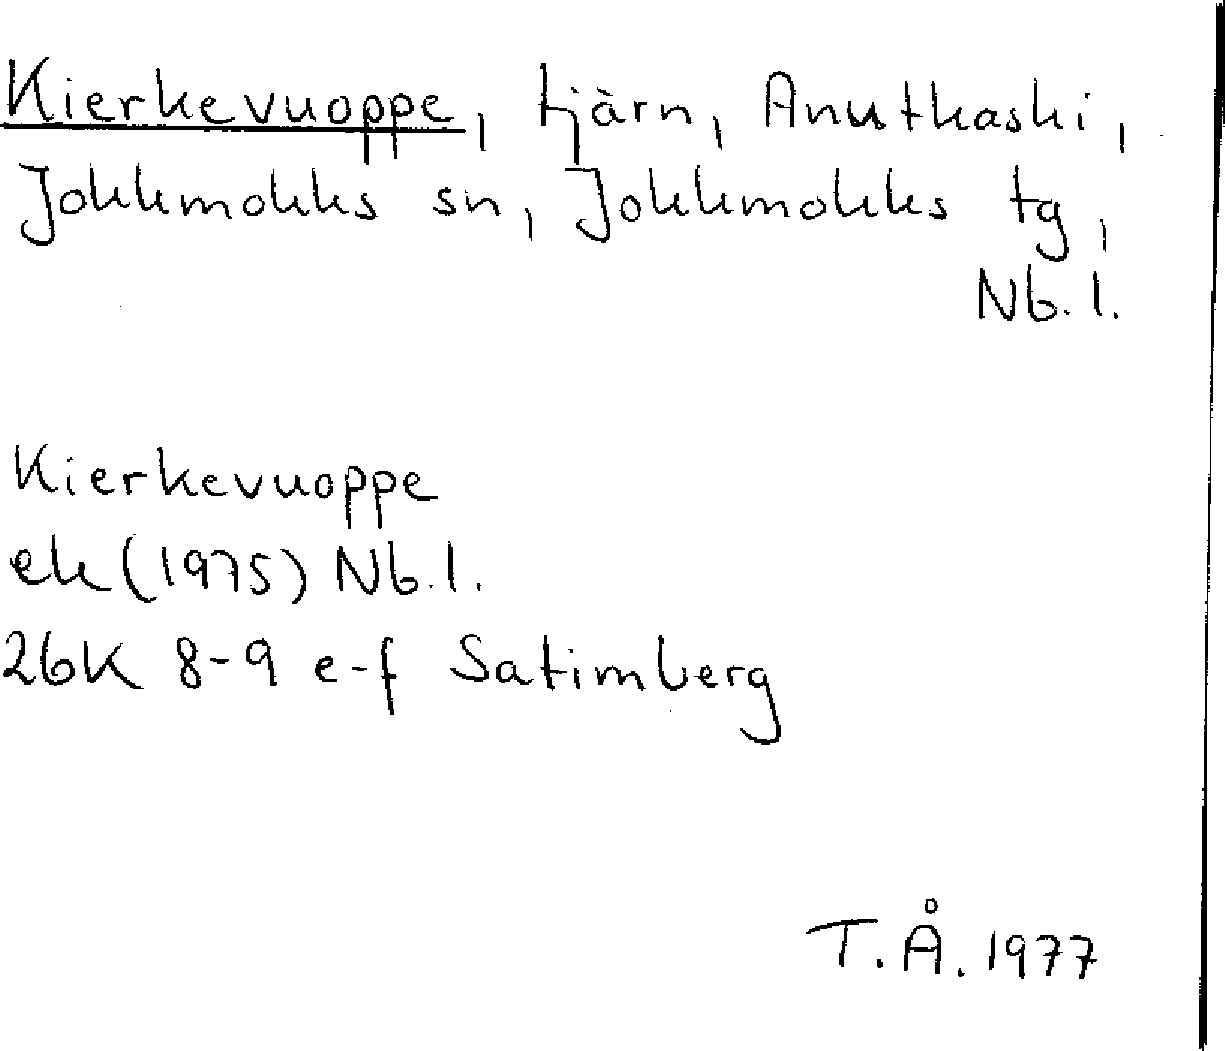 Kierkevuoppe, tjärn, Anutkaski,
Jokkmokks sn, Jokkmokks tg,
Nb. l.
Kierkevuoppe
ek (1975) Nb. l.
26K 8-9 e-f Satimberg
T. Å. 1977